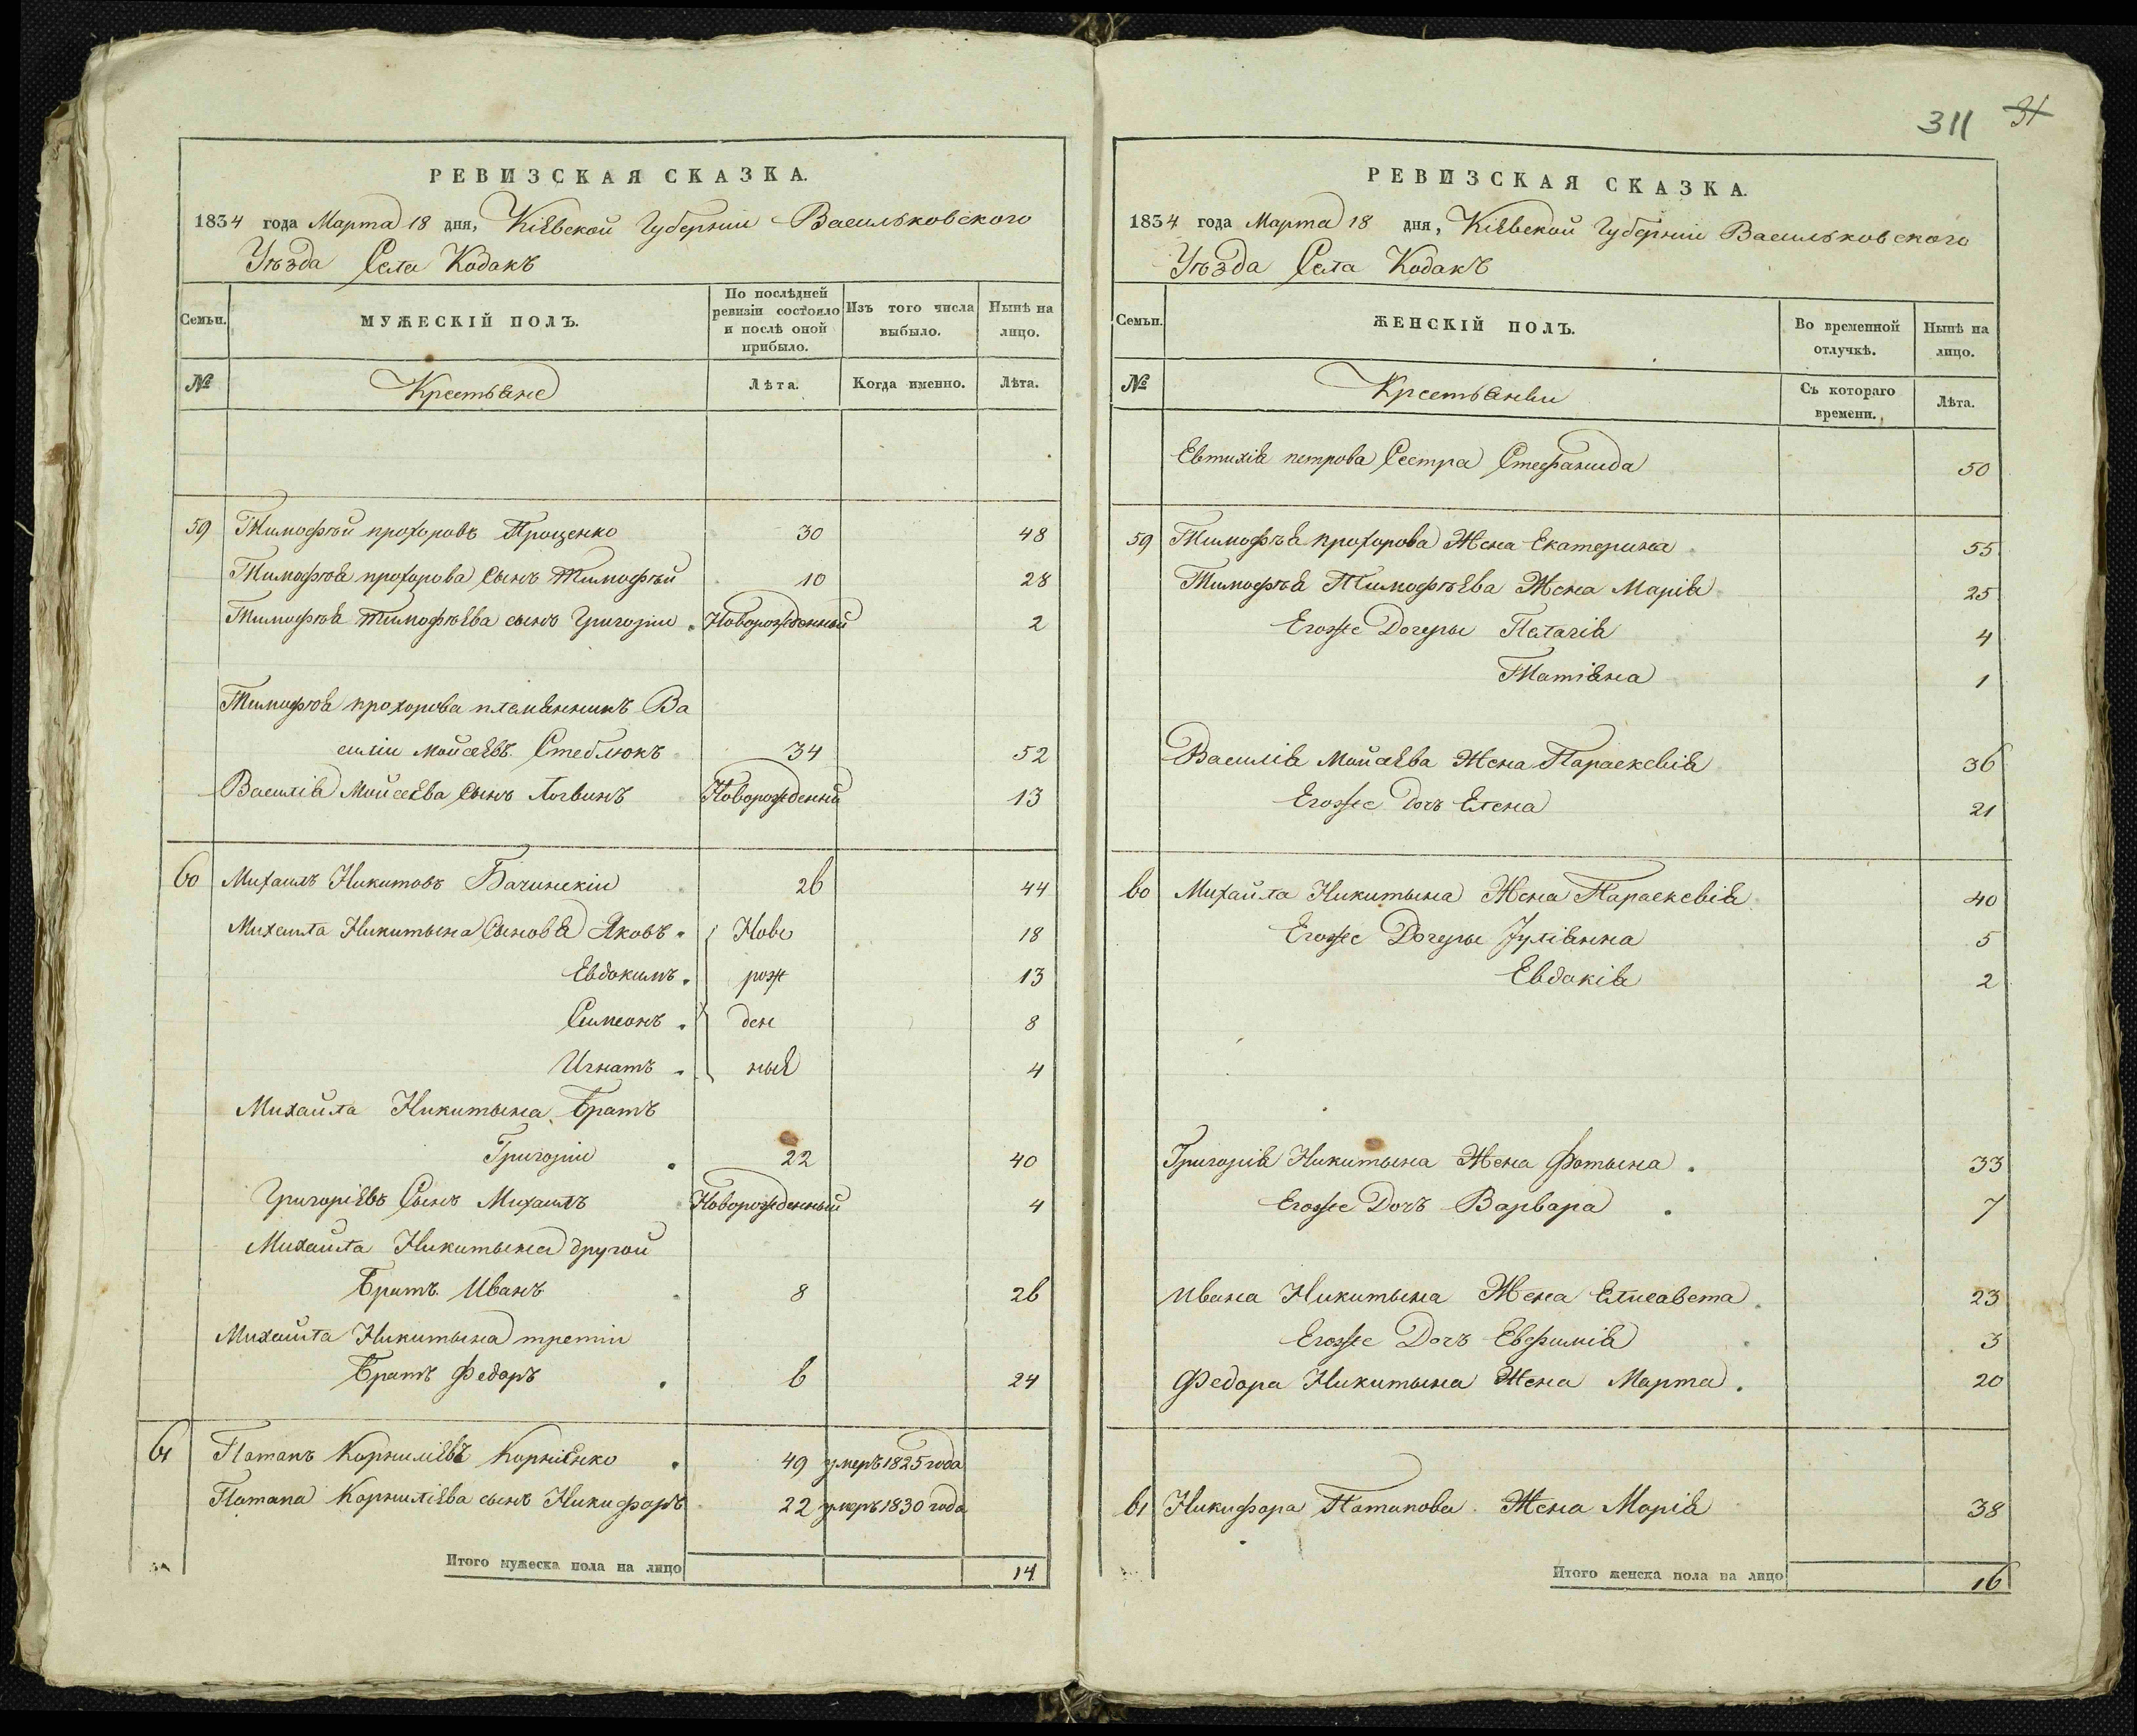 РЕВИЗСКАЯ СКАЗКА.
1834 года Марта 18 дня, Кіевской Губерніи Васильковского
Уѣзда Села Кодакъ
Семьи.
МУЖЕСКІЙ ПОЛЪ.
По послѣдней ревизіи состояло и послѣ оной прибыло.
Изъ того числа выбыло.
Нынѣ на лицо.
№ Крестьяне Лѣта. Когда именно. Лѣта.
59 Тимофѣй прохоровъ Проценко 30 48
Тимофѣя прохорова Сынъ Тимофѣй 10 28
Тимофѣя Тимофѣева сынъ Григоріи Новорожденный 2
Тимофѣя прохорова племянникъ Ва
силіи Мойсеевъ Стеблюкъ 34 52
Василія Мойсеева Сынъ Логвинъ Новорожденны 13
60 Михаилъ Никитовъ Бачинскіи 26 44
Михаила Никитына Сыновя Яковъ Ново 18
Евдокимъ рож 13
Симеонъ ден 8
Игнатъ ные 4
Михайла Никитына Братъ
Григоріи 22 40
Григоріевъ Сынъ Михаилъ Новорожденный 4
Михайла Никитына другой
Братъ Иванъ 8 26
Михайла Никитына третіи
Братъ Федоръ 6 24
61 Потапъ Корниліевъ Корніенко 49 умеръ 1825 года
Потапа Корниліева сынъ Никифоръ 22 умеръ 1830 года
Итого мужеска пола на лицо 14
311 31
РЕВИЗСКАЯ СКАЗКА.
1834 года Марта 18 дня, Кіевской Губерніи Васильковского
Уѣзда Села Кодакъ
Семьи.
ЖЕНСКІЙ ПОЛЪ.
Во временной отлучкѣ.
Нынѣ на лицо.
№ Крестьянки Съ котораго времени. Лѣта.
Евтихія петрова Сестра Стефанида 50
59 Тимофѣя прохорова Жена Екатерина 55
Тимофѣя Тимофѣева Жена Марія 25
Егоже Дочеры Пелагія 4
Татіяна 1
Василія Мойсеева Жена Параскевія 36
Егоже Дочъ Елена 21
60 Михайла Никитына Жена Параскевія 40
Егоже Дочеры Іуліянна 5
Евдокія 2
Григорія Никитына Жена Фотына 33
Егоже Дочъ Варвара 7
Ивана Никитына Жена Елисавета 23
Егоже Дочъ Евфимія 3
Федора Никитына Жена Марта 20
61 Никифора Потапова Жена Марія 38
Итого женска пола на лицо 16